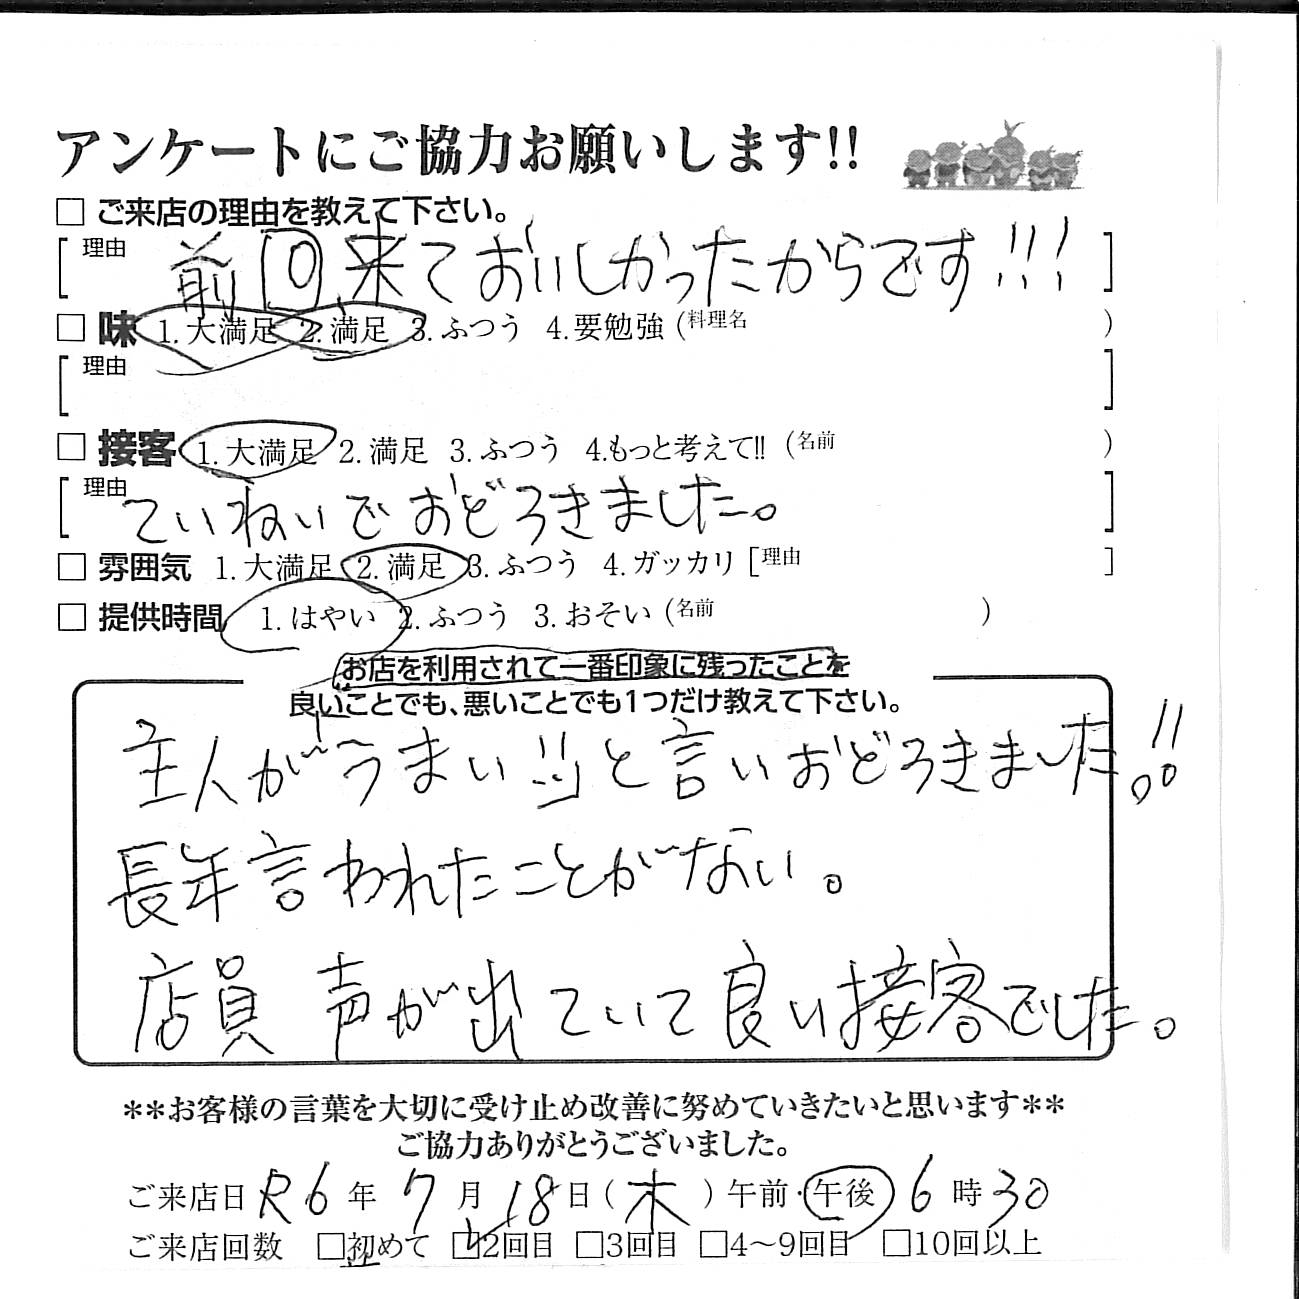 アンケートにご協力お願いします!!
□ ご来店の理由を教えて下さい。
[理由 前回来ておいしかったからです!!! ]
□ 味 1.大満足 2.満足 3.ふつう 4.要勉強 (料理名 )
[理由 ]
□ 接客 1.大満足 2.満足 3.ふつう 4.もっと考えて!! (名前 )
[理由 ていねいでおどろきました。 ]
□ 雰囲気 1.大満足 2.満足 3.ふつう 4.ガッカリ [理由 ]
□ 提供時間 1.はやい 2.ふつう 3.おそい (名前 )
お店を利用されて一番印象に残ったことを
良いことでも、悪いことでも1つだけ教えて下さい。
主人がうまい!!と言いおどろきました。!!
長年言われたことがない。
店員 声が出ていて良い接客でした。
**お客様の言葉を大切に受け止め改善に努めていきたいと思います**
ご協力ありがとうございました。
ご来店日 R6年 7月 18日(木)午前・午後 6時30
ご来店回数 □初めて □2回目 □3回目 □4〜9回目 □10回以上